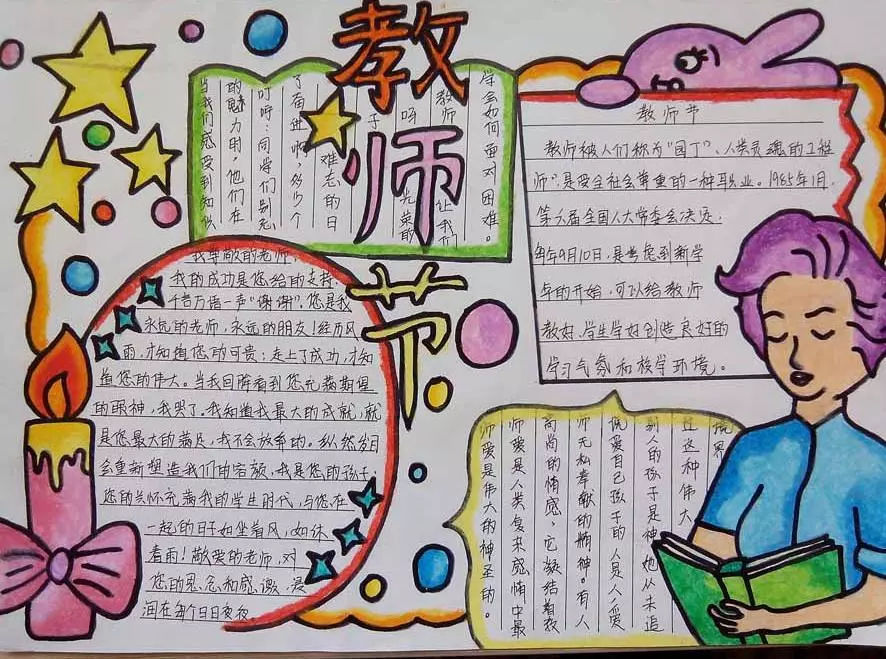 教师节
当我们感受到知似
的魅力时,他们在
叮咛:同学们别忘
了奋进啊,多少个
难志的日
子
呀
光荣的
教师
让我们
学会如何面对困难。
教师节
教师被人们称为“园丁”、人类灵魂的工程
师”,是受全社会尊重的一种职业。1985年1月,
第六届全国人大常委会决定,
每年9月10日,是考虑到新学
年的开始,可以给教师
教好、学生学好创造良好的
学习气氛和教学环境。
我尊敬的老师
我的成功是您给的支持,
千言万语一声“谢谢”。您是我
永远的老师,永远的朋友!经历风
雨,才知道您的可贵;走上了成功,才知
道您的伟大。当我回眸看到您充满期望
的眼神,我哭了。我知道我最大的成就,就
是您最大的满足,我不会放弃的。纵然岁月
会重新塑造我们的容颜,我是您的孩子;
您的关怀充满我的学生时代,与您在
一起的日子如坐春风,如沐
春雨!敬爱的老师,对
您的思念和感激,浸
润在每个日日夜夜
师爱是伟大的神圣的。
师爱是人类复来感情中最
高尚的情感,它凝结着教
师无私奉献的精神。有人
说爱自己孩子的人是人,爱
别人的孩子是神,她从未追
过这种伟大
境界